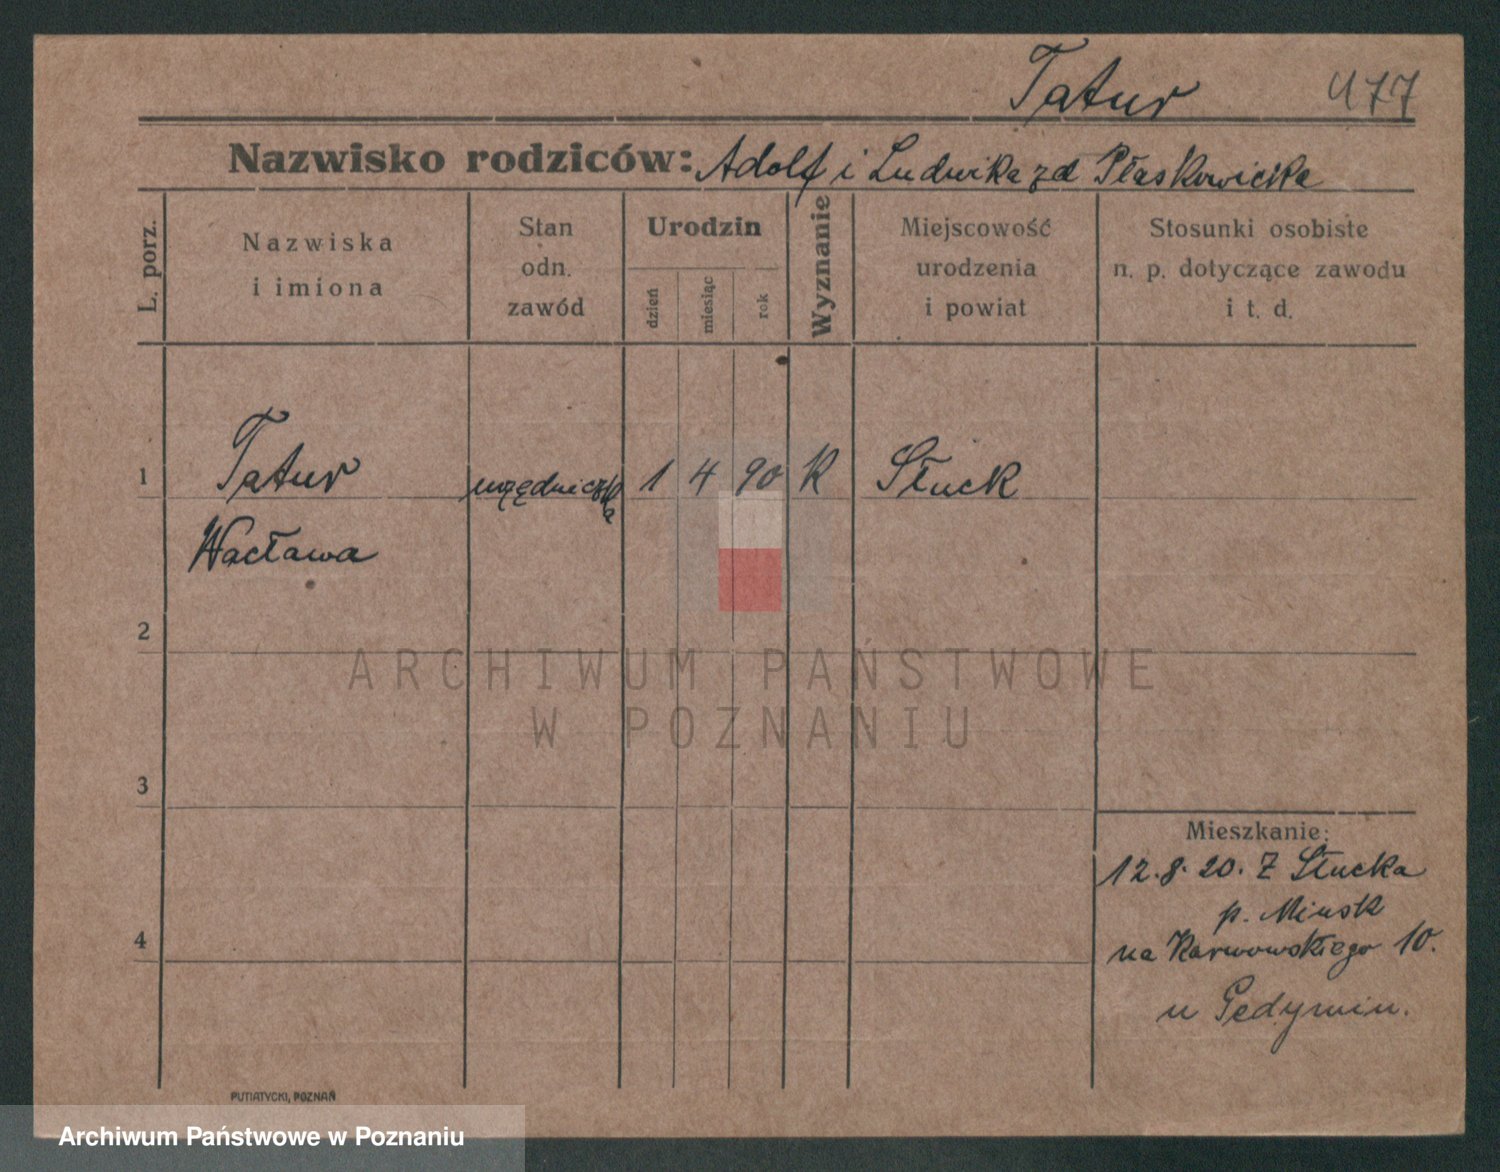 Tatur 477
Nazwisko rodziców: Adolf i Ludwika zd Płaskowicka
L. porz.
Nazwiska
i imiona
Stan
odn.
zawód
Urodzin
dzień
miesiąc
rok
Wyznanie
Miejscowość
urodzenia
i powiat
Stosunki osobiste
n. p. dotyczące zawodu
i t. d.
1 Tatur urzędniczka 1 4 90 K Słuck
Wacława
2
ARCHIWUM PAŃSTWOWE
W POZNANIU
3
Mieszkanie:
12.8.20. Z Słucka
p. Minsk
4
na Karwowskiego 10.
u Gedymin.
PUTIATYCKI, POZNAŃ
Archiwum Państwowe w Poznaniu